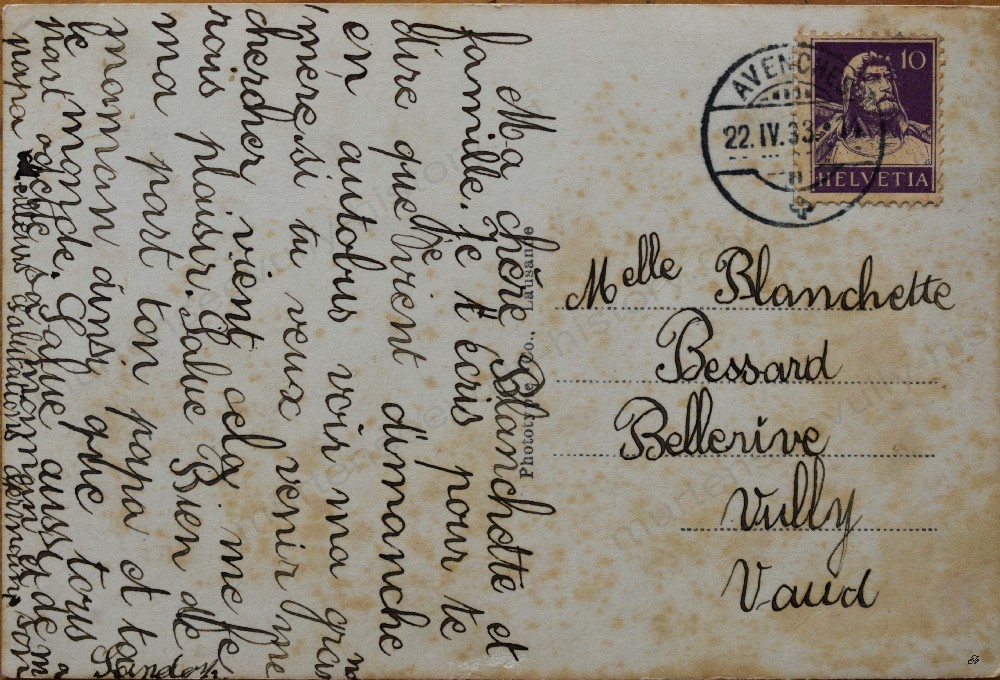 Ma chère Blanchette et
famille. Je t'écris pour te
dire que je vient dimanche
en autobus voir ma gran
mère. si tu veux venir me
chercher vient cela me fe
rois plaisir. Salue Bien de
ma part ton papa et ta
maman ainsi que tous
le monde. Salue aussi de m
part odette sa maman et
papa
Salutations
AVENCHES
22.IV.33
10
HELVETIA
Phototypie Co., Lausanne
Melle Blanchette
Bessard
Bellerive
Vully
Vaud